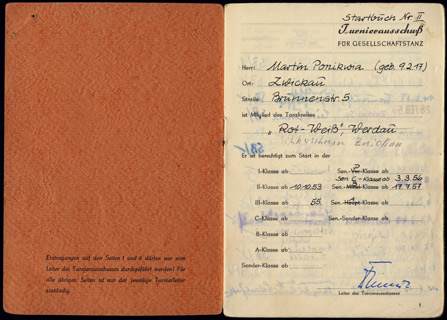 Eintragungen auf den Seiten 1 und 6 dürfen nur vom
Leiter des Turnierausschusses durchgeführt werden! Für
alle übrigen Seiten ist nur der jeweilige Turnierleiter
zuständig.
Startbuch Nr. II
Turnierausschuß
FÜR GESELLSCHAFTSTANZ
Herr: Martin Ponikwia (geb. 9.2.17)
Ort: Zwickau
Straße Brunnenstr. 5
ist Mitglied des Tanzkreises
"Rot-Weiß", Werdau
Zwickau
Er ist berechtigt zum Start in der
I-Klasse ab Sen. Klasse ab
Sen. C-Klasse ab 3.3.56
II-Klasse ab 10.10.53 Sen. Klasse ab 17.9.57
III-Klasse ab 55. Sen. Klasse ab
C-Klasse ab Sen.-Sonder-Klasse ab
B-Klasse ab
A-Klasse ab
Sonder-Klasse ab
Leiter des Turnierausschusses
1